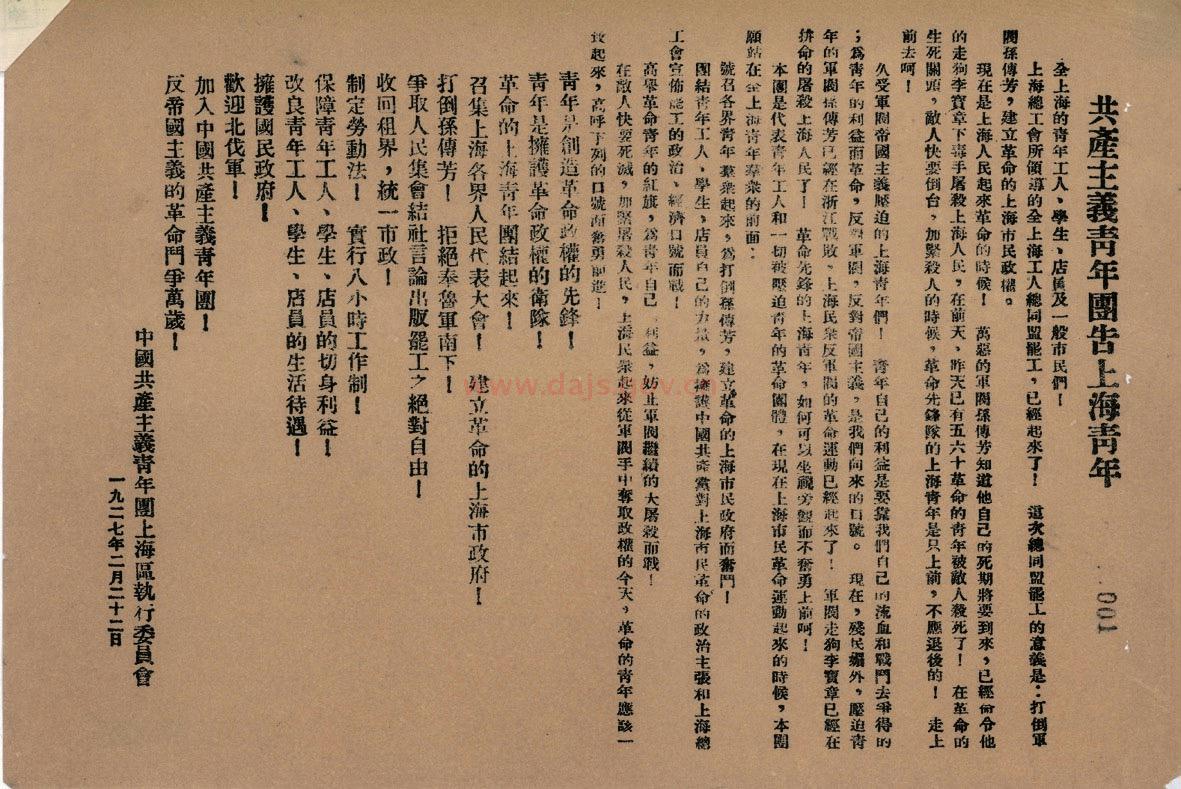 共產主義靑年團吿上海靑年
001
全上海的靑年工人、學生、店員及一般市民們！
上海總工會所領導的全上海工人總同盟罷工，已經起來了！　這次總同盟罷工的意義是：打倒軍
閥孫傳芳，建立革命的上海市民政權。
現在是上海人民起來革命的時候！　萬惡的軍閥孫傳芳知道他自己的死期將要到來，已經命令他
的走狗李寶章下毒手屠殺上海人民，在前天，昨天已有五六十革命的靑年被敵人殺死了！　在革命的
生死關頭，敵人快要倒台，加緊殺人的時候，革命先鋒隊的上海靑年是只上前，不應退後的！　走上
前去呵！
久受軍閥帝國主義壓迫的上海靑年們！　靑年自己的利益是要靠我們自己的流血和戰鬥去爭得的
；爲靑年的利益而革命，反對軍閥，反對帝國主義，是我們向來的口號。　現在，殘民媚外，壓迫靑
年的軍閥孫傳芳已經在浙江戰敗，上海民衆反軍閥的革命運動已經起來了！　軍閥走狗李寶章已經在
拚命的屠殺上海人民了！　革命先鋒的上海靑年，如何可以坐視旁觀而不奮勇上前呵！
本團是代表靑年工人和一切被壓迫靑年的革命團體，在現在上海市民革命運動起來的時候，本團
願站在全上海靑年羣衆的前面：
號召各界靑年羣衆起來，爲打倒孫傳芳，建立革命的上海市民政府而奮鬥！
團結靑年工人、學生，店員自己的力量，爲擁護中國共產黨對上海市民革命的政治主張和上海總
工會宣佈罷工的政治、經濟口號而戰！
高舉革命靑年的紅旗，爲靑年自己 利益，妨止軍閥繼續的大屠殺而戰！
在敵人快要死滅，加緊屠殺人民，上海民衆起來從軍閥手中奪取政權的今天，革命的靑年應該一
致起來，高呼下列的口號而奮勇前進！
靑年是創造革命政權的先鋒！
靑年是擁護革命政權的衛隊！
革命的上海靑年團結起來！
召集上海各界人民代表大會！　建立革命的上海市政府！
打倒孫傳芳！　拒絕奉魯軍南下！
爭取人民集會結社言論出版罷工之絕對自由！
收回租界，統一市政！
制定勞動法！　實行八小時工作制！
保障靑年工人、學生、店員的切身利益！
改良靑年工人、學生、店員的生活待遇！
擁護國民政府！
歡迎北伐軍！
加入中國共產主義靑年團！
反帝國主義的革命鬥爭萬歲！
中國共產主義靑年團上海區執行委員會
一九二七年二月二十二日
www.dajs.gov.cn